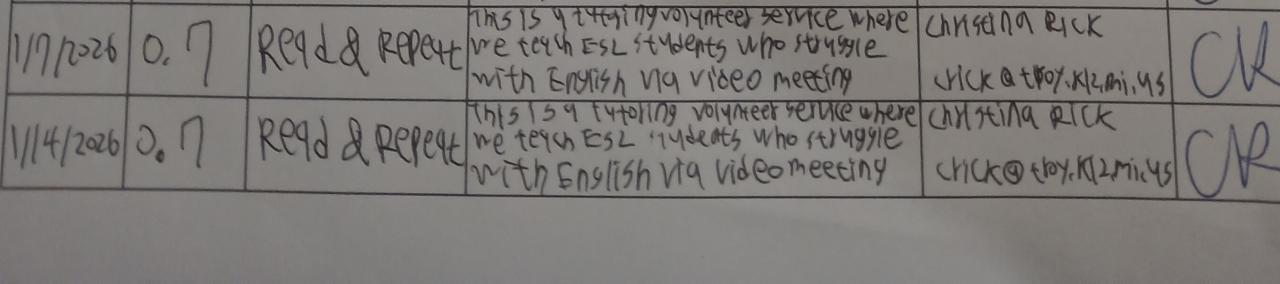 1/7/2026 0.7 Read & Repeat This is a tutoring volunteer service where we teach ESL students who struggle with English via video meeting Christina Rick crick@troy.k12.mi.us CR
1/14/2026 0.7 Read & Repeat This is a tutoring volunteer service where we teach ESL students who struggle with English via video meeting Christina Rick crick@troy.k12.mi.us CR